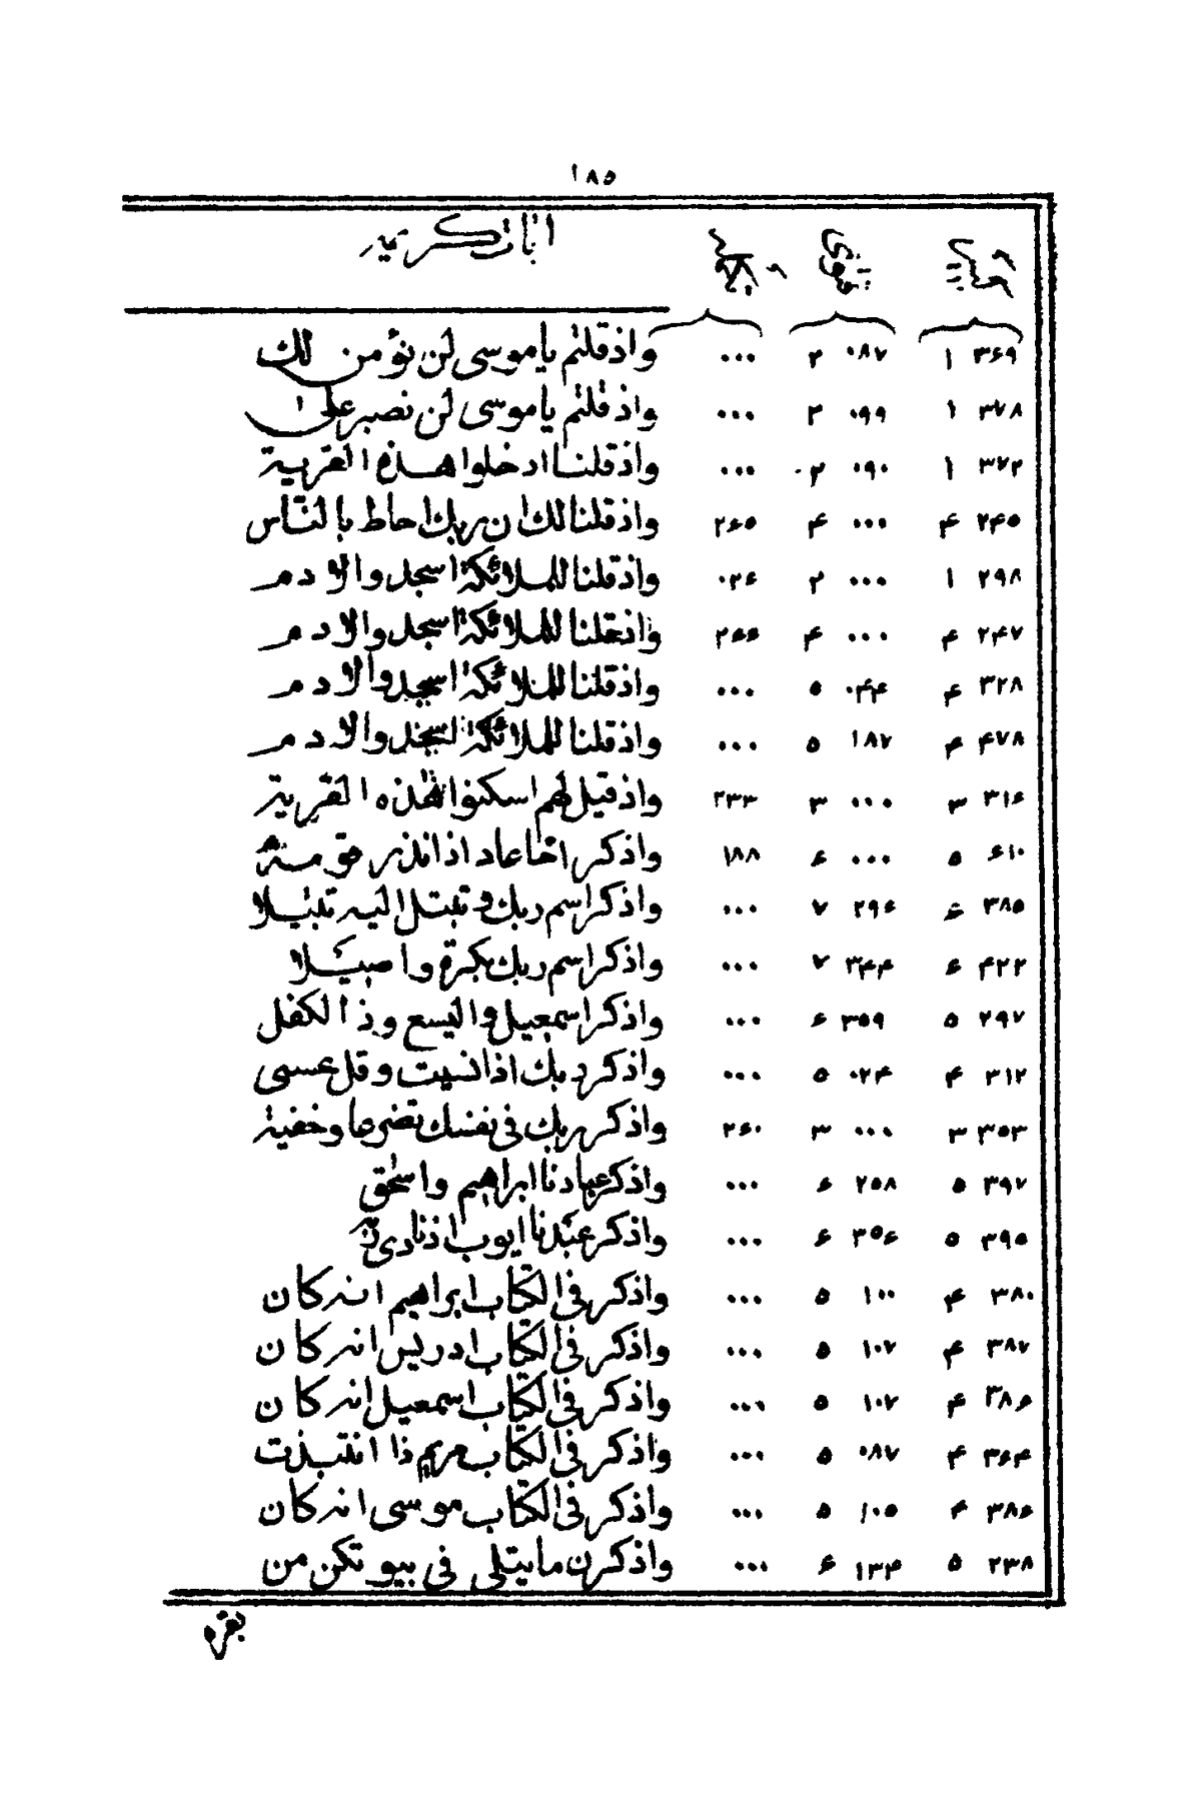 ١٨٥
اٰيات كريمه
٣۶٩ ١ ٠٨٧ ٢ ... واذ قلتم ياموسى لن نؤمن لك
٣٧٨ ١ ٠٩٩ ٢ ... واذ قلتم ياموسى لن نصبر على
٣٧٢ ١ ٠٩٠ ٢ ... واذ قلنا ادخلوا هذه القرية
٢۴٥ ۴ ... ۴ ٢۶٥ واذ قلنا لك ان ربك احاط بالناس
٢٩٨ ١ ... ٢ ٠٢۶ واذ قلنا للملائكة اسجدوا لادم
٢۴٧ ۴ ... ۴ ٢۶۶ واذ قلنا للملائكة اسجدوا لادم
٣٢٨ ۴ ٠۴۴ ٥ ... واذ قلنا للملائكة اسجدوا لادم
۴٧٨ ۴ ١٨٧ ٥ ... واذ قلنا للملائكة اسجدوا لادم
٣١۶ ٣ ... ٣ ٢٣٣ واذ قيل لهم اسكنوا هذه القرية
۶١٠ ٥ ... ۶ ١٨٨ واذكر اخا عاد اذ انذر قومه
٣٨٥ ۶ ٢٩۶ ٧ ... واذكر اسم ربك وتبتل اليه تبتيلا
۴٢٢ ۶ ٣۴۴ ٧ ... واذكر اسم ربك بكرة واصيلا
٢٩٧ ٥ ٣٥٩ ۶ ... واذكر اسمعيل واليسع وذا الكفل
٣١٢ ۴ ٠٢۴ ٥ ... واذكر ربك اذا نسيت وقل عسى
٣٥٣ ٣ ... ٣ ٢۶٠ واذكر ربك فى نفسك تضرعا وخفية
٣٩٧ ٥ ٢٥٨ ۶ ... واذكر عبادنا ابراهيم واسحق
٣٩٥ ٥ ٣٥۶ ۶ ... واذكر عبدنا ايوب اذ نادى ربه
٣٨٠ ۴ ١٠٠ ٥ ... واذكر فى الكتاب ابراهيم انه كان
٣٨٧ ۴ ١٠٧ ٥ ... واذكر فى الكتاب ادريس انه كان
٣٨۶ ۴ ١٠٧ ٥ ... واذكر فى الكتاب اسمعيل انه كان
٣۶۴ ۴ ٠٨٧ ٥ ... واذكر فى الكتاب مريم اذ انتبذت
٣٨۶ ۴ ١٠٥ ٥ ... واذكر فى الكتاب موسى انه كان
٢٣٨ ٥ ١٣۴ ۶ ... واذكرن ما يتلى فى بيوتكن من
بقره